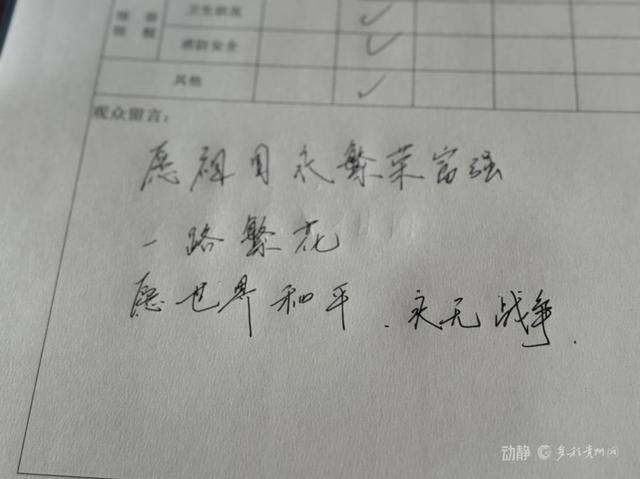 卫生状况 ✓
消防安全 ✓
其他 ✓
观众留言：
愿祖国永繁荣富强
一路繁花
愿世界和平、永无战争.
动静 多彩贵州网